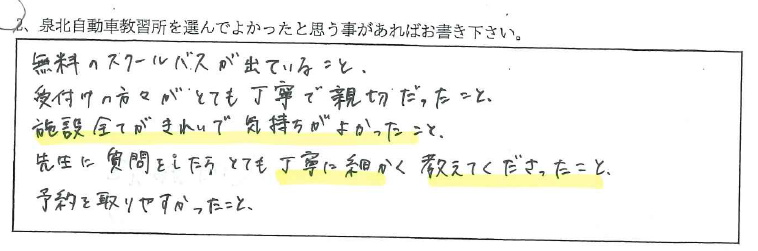 2、泉北自動車教習所を選んでよかったと思う事があればお書き下さい。
無料のスクールバスが出ていること、
受付けの方々がとても丁寧で親切だったこと、
施設全てがきれいで気持ちがよかったこと、
先生に質問をしたらとても丁寧に細かく教えてくださったこと、
予約を取りやすかったこと、